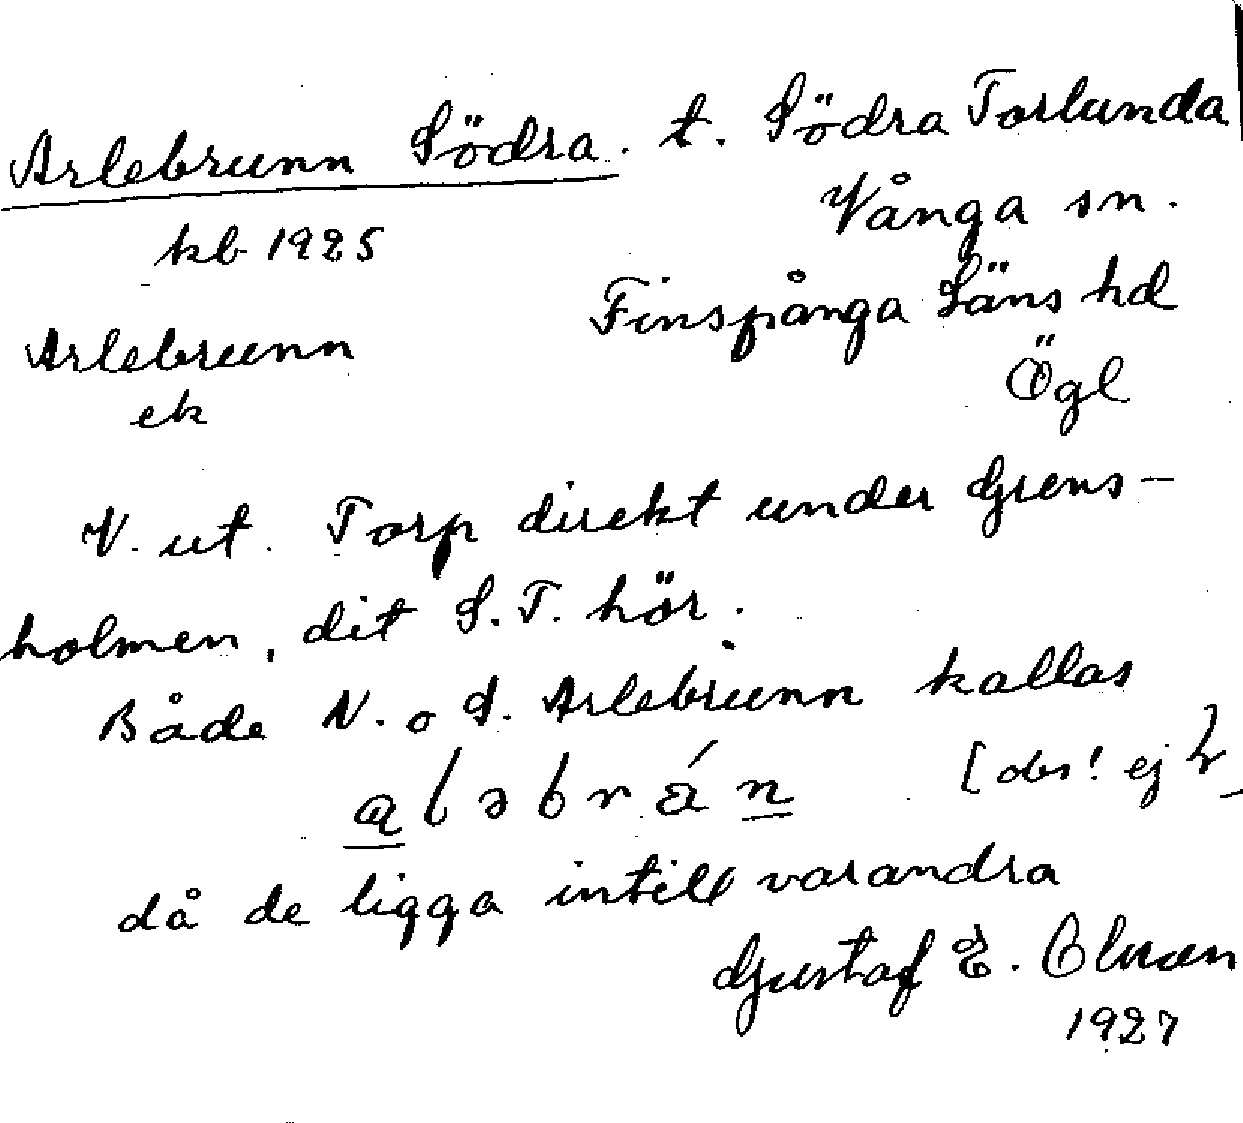 Arlebrunn Södra. t. Södra Torlunda
kb 1925
Vånga sn.
Arlebrunn
ek
Finspånga Läns hd
Ögl
V. ut. Torp direkt under Grens-
holmen, dit S. T. hör.
Både N. o S. Arlebrunn kallas
aləbrán [obs! ej
då de ligga intill varandra
Gustaf E. Olsson
1927